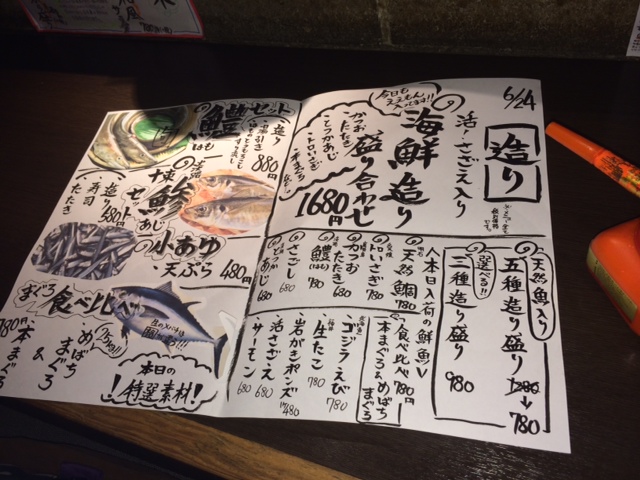 6/24
造り
今日もええもん入ってます!!
活!さざえ入り
海鮮造り
盛り合わせ
1680円
かつおたたき
とろいさぎ
本まぐろ
天然魚入り
五種造り盛り
1280→780
選べる!!
三種造り盛り
980
∧本日入荷の鮮魚∨
天然鯛 780
とろいさぎ 780
かつおたたき 680
鱧(はも) 780
さごし 680
とつかあじ 680
食べ比べ 780円
本まぐろ&めばちまぐろ
ゴジラえび 780
生たこ 780
岩がきポンズ 480
活さざえ 680
サーモン 680
鱧セット
はも
造り
湯引き
880円
鯵
あじ
造り
寿司
たたき
580円
小あゆ
天ぷら 480円
まぐろ食べ比べ
めばちまぐろ
本まぐろ
780円
本日の
特選素材!